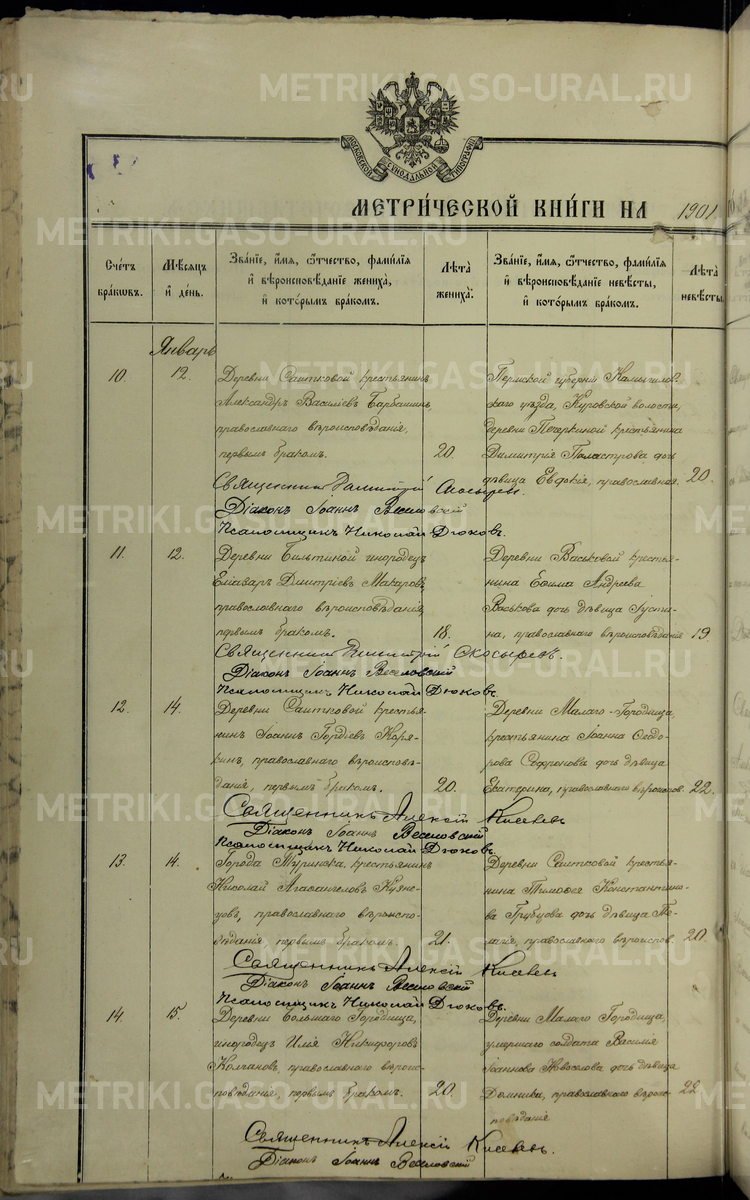 METRIKI.GASO-URAL.RU
МОСКОВСКОЙ СѴНОДАЛЬНОЙ ТИПОГРАФІИ
МЕТРИ́ЧЕСКОЙ КНИ́ГИ НА 1901
Сче́тъ бра́кѡвъ.
Мѣ́сяцъ и҆ де́нь.
Зва́нїе, и҆́мя, ѻ҆́тчество, фами́лїя и҆ вѣроисповѣ́данїе жениха̀, и҆ кото́рымъ бра́комъ.
Лѣ́та жениха̀.
Зва́нїе, и҆́мя, ѻ҆́тчество, фами́лїя и҆ вѣроисповѣ́данїе невѣ́сты, и҆ кото́рымъ бра́комъ.
Лѣ́та невѣ́сты.
Январь
10.
12.
Деревни Саитковой крестьянинъ
Александръ Василіевъ Барбашинъ,
православнаго вѣроисповѣданія,
первымъ бракомъ.
20.
Пермской губерніи Камышлов-
скаго уѣзда, Куровской волости,
деревни Печеркиной крестьянина
Димитрія Поластрова дочь
дѣвица Евдокія, православная.
20.
Священникъ Димитрій Скосыревъ.
Діаконъ Іоаннъ Веселовскій
Псаломщикъ Николай Дюковъ.
11.
12.
Деревни Бильтиной инородецъ
Елеазаръ Димитріевъ Макаровъ,
православнаго вѣроисповѣданія,
первымъ бракомъ.
18.
Деревни Васьковой крестья-
нина Ефима Андреева
Васькова дочь дѣвица Іусти-
на, православнаго вѣроисповѣданія
19
Священникъ Димитрій Скосыревъ.
Діаконъ Іоаннъ Веселовскій
Псаломщикъ Николай Дюковъ
12.
14.
Деревни Саитковой крестья-
нинъ Іоаннъ Гордіевъ Коря-
кинъ, православнаго вѣроисповѣ-
данія, первымъ бракомъ.
20.
Деревни Малаго-Городища,
крестьянина Іоанна Ѳеодо-
рова Софронова дочь дѣвица
Екатерина, православнаго вѣроисповѣд.
22.
Священникъ Алексій Киселевъ
Діаконъ Іоаннъ Веселовскій
Псаломщикъ Николай Дюковъ.
13.
14.
Города Туринска крестьянинъ
Николай Агафангеловъ Кузне-
цовъ, православнаго вѣроиспо-
вѣданія, первымъ бракомъ.
21.
Деревни Саитковой крестья-
нина Тимоѳея Константино-
ва Трубцова дочь дѣвица Пе-
лагія, православнаго вѣроиспов.
20.
Священникъ Алексій Киселевъ
Діаконъ Іоаннъ Веселовскій
Псаломщикъ Николай Дюковъ.
14.
15.
Деревни Большаго Городища,
инородецъ Илія Никифоровъ
Колчановъ, православнаго вѣроис-
повѣданія, первымъ бракомъ.
20.
Деревни Малаго Городища,
умершаго солдата Василія
Іоаннова Новоселова дочь дѣвица
Домника, православнаго вѣроис-
повѣданія
22
Священникъ Алексій Киселевъ.
Діаконъ Іоаннъ Веселовскій